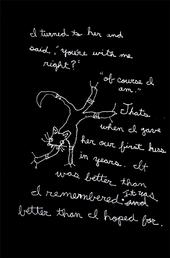 I turned to her and
said, "you're with me
right?"
"of course I
am."
Thats
when I gave
her our first kiss
in years. It
was better than
I remembered. It was
and
better than I hoped for.